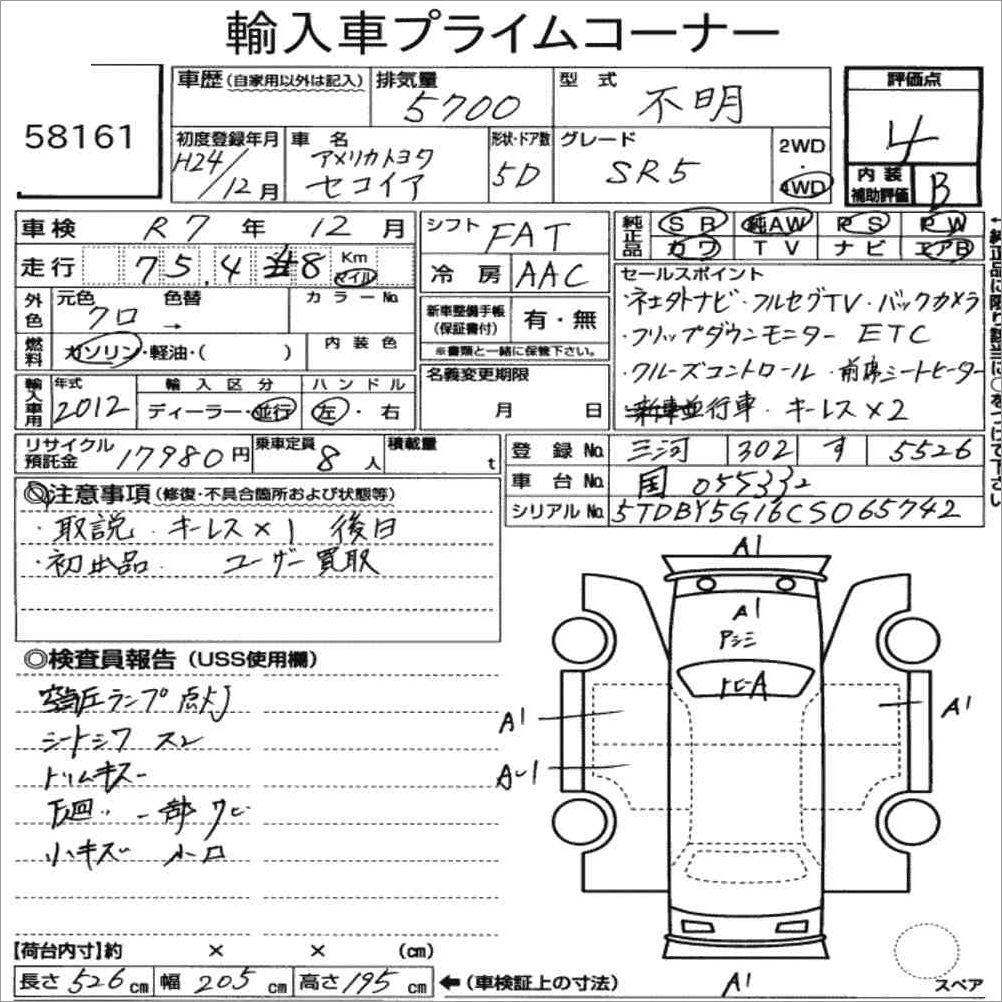 輸入車プライムコーナー
58161
車歴(自家用以外は記入) 排気量 5700 型式 不明 評価点 4
初度登録年月 H24/12月 車名 アメリカトヨタ セコイア 形状・ドア数 5D グレード SR5 2WD・4WD 内装補助評価 B
車検 R7年 12月 シフト FAT 純正品 SR 純AW PS PW
カワ TV ナビ エアB
走行 75,4 8 Km マイル 冷房 AAC セールスポイント
外色 元色 クロ 色替 → カラーNo. 新車整備手帳(保証書付) 有・無
・社外ナビ・フルセグTV・バックカメラ
・フリップダウンモニター ETC
燃料 ガソリン・軽油・( ) 内装色 ※書類と一緒に保管下さい。
・クルーズコントロール・前席シートヒーター
輸入車用 年式 2012 輸入区分 ディーラー・並行 ハンドル 左・右 名義変更期限 月 日
新車並行車・キーレス×2
←純正品に限り該当に○をつけて下さい
リサイクル預託金 17980円 乗車定員 8人 積載量 t 登録No. 三河 302 す 5526
車台No. 国 055332
シリアルNo. 5TDBY5G16CS065742
◎注意事項(修復・不具合箇所および状態等)
・取説 キーレス×1 後日
・初出品 ユーザー買取
◎検査員報告(USS使用欄)
空気圧ランプ点灯
シートシワ スレ
トリムキズ
下廻 一部サビ
小キズ 小凹
A1
A1
Pシミ
トビA
A1
A1
A1
A1
スペア
【荷台内寸】約 × × (cm)
長さ 526cm 幅 205cm 高さ 195cm ←(車検証上の寸法)